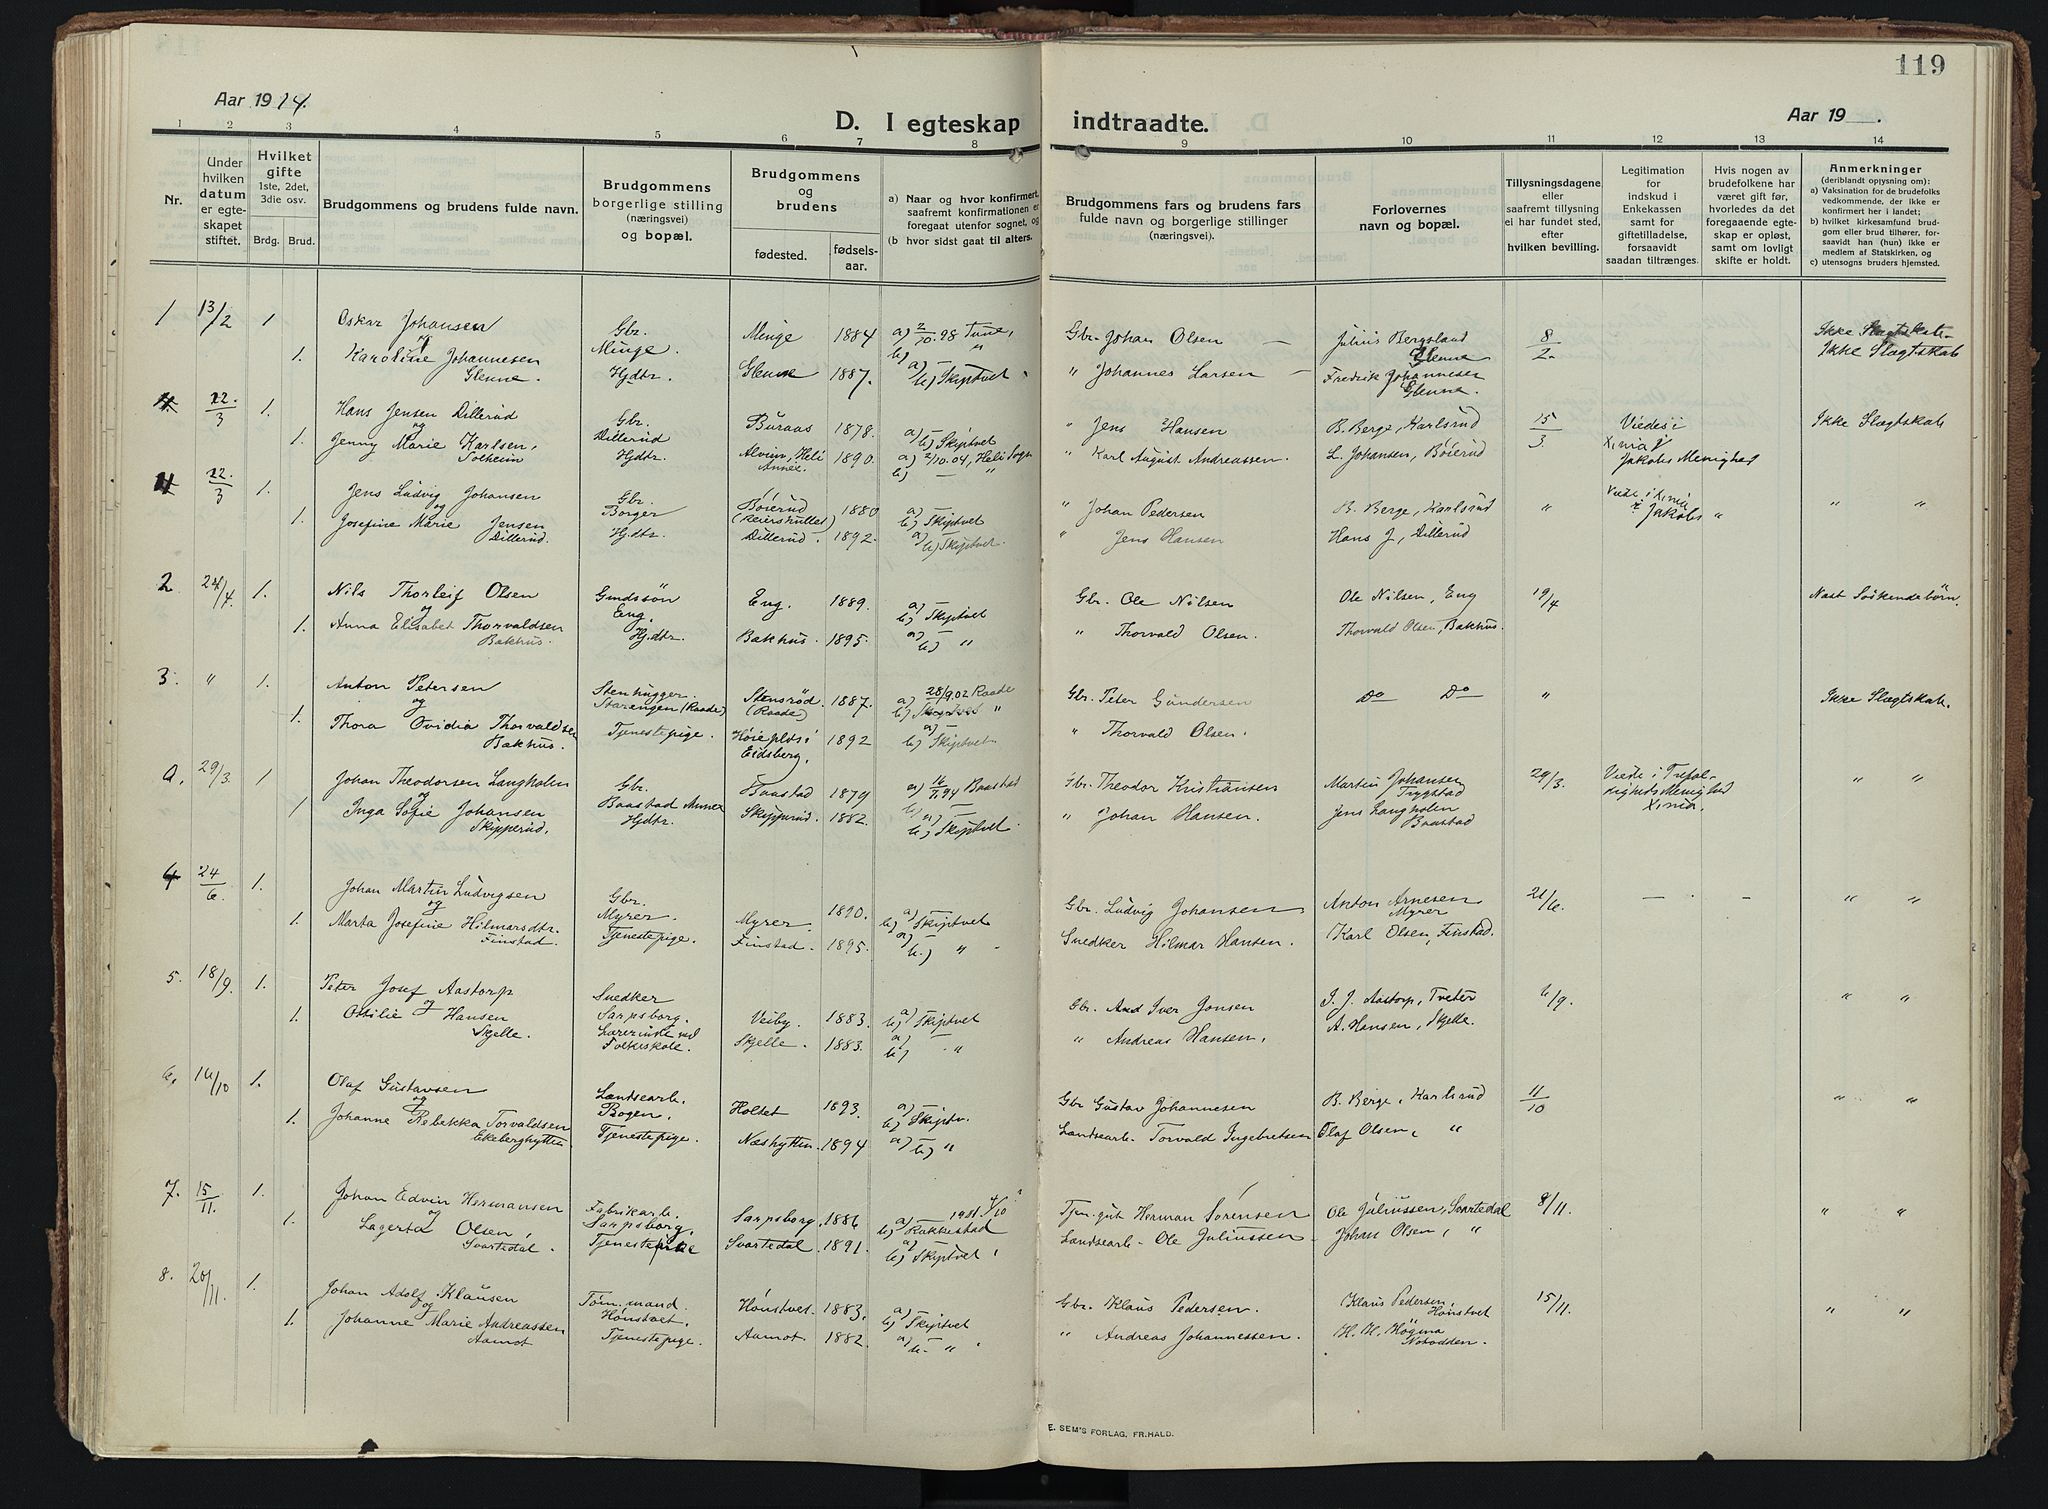 119
Aar 1914.
D. I egteskap indtraadte.
Aar 19 .
1 2 3 4 5 6 7 8 9 10 11 12 13 14
Nr.
Under hvilken datum er egteskapet stiftet.
Hvilket gifte 1ste, 2det, 3die osv.
Brdg. Brud.
Brudgommens og brudens fulde navn.
Brudgommens borgerlige stilling (næringsvei) og bopæl.
Brudgommens og brudens
fødested. fødsels-aar.
a) Naar og hvor konfirmert, saafremt konfirmationen er foregaat utenfor sognet, og
(b hvor sidst gaat til alters.
Brudgommens fars og brudens fars fulde navn og borgerlige stillinger (næringsvei).
Forlovernes navn og bopæl.
Tillysningsdagene eller saafremt tillysning ei har fundet sted, efter hvilken bevilling.
Legitimation for indskud i Enkekassen samt for giftetilladelse, forsaavidt saadan tiltrænges.
Hvis nogen av brudefolkene har været gift før, hvorledes da det foregaaende egteskap er opløst, samt om lovligt skifte er holdt.
Anmerkninger (deriblandt opjysning om):
a) Vaksination for de brudefolks vedkommende, der ikke er konfirmert her i landet;
b) hvilket kirkesamfund brudgom eller brud tilhører, forsaavidt han (hun) ikke er medlem af Statskirken, og
c) utensogns bruders hjemsted.
1 13/2 1 Oskar Johansen Gbr. Minge 1884 a) 2/10.98 Tune, Gbr. Johan Olsen — Julius Bergsland 8/2
og Minge. b) " Glenne Ikke Slægtskab
1. Karoline Johannesen Hjdtr. Glenne 1887. a) " Johannes Larsen — Fredrik Johannesen
Glenne. b) Skiptvet Glenne.
22/3 1. Hans Jensen Dillerud Gbr. Buraas 1878. a) — " Jens Hansen B. Berge, Karlsrud 15/3 Viedes i Ikke Slægtskab
og Dillerud b) Skiptvet X.nia
1. Jenny Marie Karlsen, Hjdtr. Alvim, Heli 1890. a) 2/10.04, Heli Sogn " Karl August Andreassen. L. Johansen, Böierud Jakobs Menighed
Solheim Annex b) — "
22/3 1. Jens Ludvig Johansen Gbr. Böierud 1880 a) — " Johan Pedersen B. Berge, Karlsrud " Viede i X.nia " "
og Borger b) Skiptvet Jakobs "
1. Josefine Marie Jensen Hjdtr. Dillerud. 1892. a) — " Jens Hansen Hans J, Dillerud
Dillerud. b) Skiptvet.
2. 24/4. 1. Nils Thorleif Olsen Eng. 1889. a) — Gbr. Ole Nilsen Ole Nilsen, Eng 19/4 Næst Söskendebörn.
og Eng. b) Skiptvet
1. Anna Elisabet Thorvaldsen Hjdtr. Bakhus. 1895. a) — " Thorvald Olsen. Thorvald Olsen, Bakhus.
Bakhus. b) "
3. " 1. Anton Petersen Stenhugger. Stensröd. 1887. a) 28/9.02 Raade Gbr. Peter Gundersen Do Do " Ikke Slægtskab.
og Starengen (Raade) (Raade) b) Skiptvet "
1. Thora Ovidia Thorvaldsen Tjenestepige. Höieplds i 1892 a) — " Thorvald Olsen.
Bakhus. Eidsberg. b) Skiptvet
a. 29/3. 1 Johan Theodorsen Langholen Gbr. Baastad 1879 a) Baastad Gbr. Theodor Kristiansen Martin Johansen 29/3. Viede i Trefol- " "
og Baastad Annex b) — Trygstad dighedsMenighed
1 Inga Sofie Johansen Hjdtr. Skipperud. 1882. a) — " Johan Hansen. Jens Langholen X.nia.
Skipperud, b) Skiptvet. Baastad
4 24/6. 1. Johan Martin Ludvigsen Gbr. Myrer 1890. a) — Gbr. Ludvig Johansen Anton Arnesen 21/6. — . — " "
og Myrer. b) Skiptvet Myrer
1. Marta Josefine Hilmarsdtr. Tjenestepige. Finstad. 1895. a) — Snedker Hilmar Hansen. Karl Olsen, Finstad.
Finstad. b) "
5. 18/9. 1. Peter Josef Aastorp Snedker Veiby. 1883. a) — Gbr. And Iver Jonsen I. J. Aastorp, Tveter 6/9. " "
og Sarpsborg. b) Skiptvet
1. Ottilie Hansen Lærerinde ved Skjelle. 1883. a) — " Andreas Hansen. A. Hansen, Skjelle.
Skjelle. Folkeskole. b) "
6. 16/10 1. Olaf Gustavsen Landsearb. Holtet 1893. a) — Gbr Gustav Johannesen B. Berge, Karlsrud 11/10 " "
og Bogen. b) Skiptv.
1. Johanne Rebekka Torvaldsen Tjenestepige. Næshytten. 1894 a) — Landsearb. Torvald Ingebretsen Olaf Olsen, "
Ekeberghytten b) "
7. 15/11. 1. Johan Edvin Hermansen Fabrikarb. Sarpsborg. 1886 a) Tjen.gut Herman Sörensen Ole Juliussen, Svartedal 8/11. " "
og Sarpsborg. b) Rakkestad
1. Lagerta Olsen, Tjenestepike Svartedal. 1891. a) — Landsearb. Ole Juliussen. Johan Olsen, "
Svartedal. b) Skiptvet.
8. 20/11. 1. Johan Adolf Klausen Töm.mand. Hönstvet. 1883. a) — Gbr. Klaus Pedersen. Klaus Pedersen 15/11. " "
og Hönstvet. b) Skiptvet Hönstvet
1. Johanne Marie Andreassen Tjenestepige. Aamot. 1882. a) — " Andreas Johannessen.
Aamot b. " Notodden.
E. SEM'S FORLAG, FR.HALD.